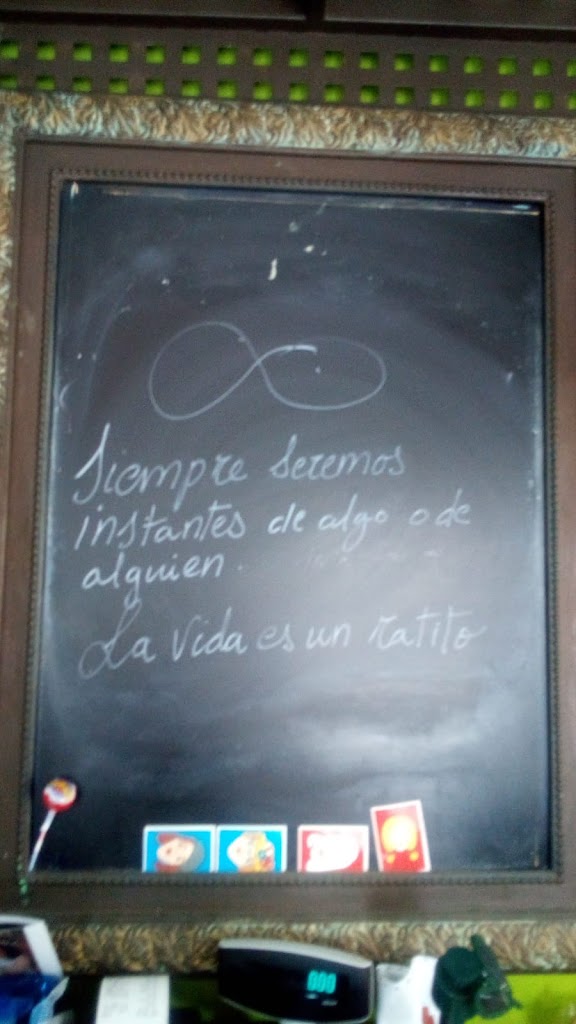 Siempre seremos
instantes de algo o de
alguien.
La vida es un ratito
0.00